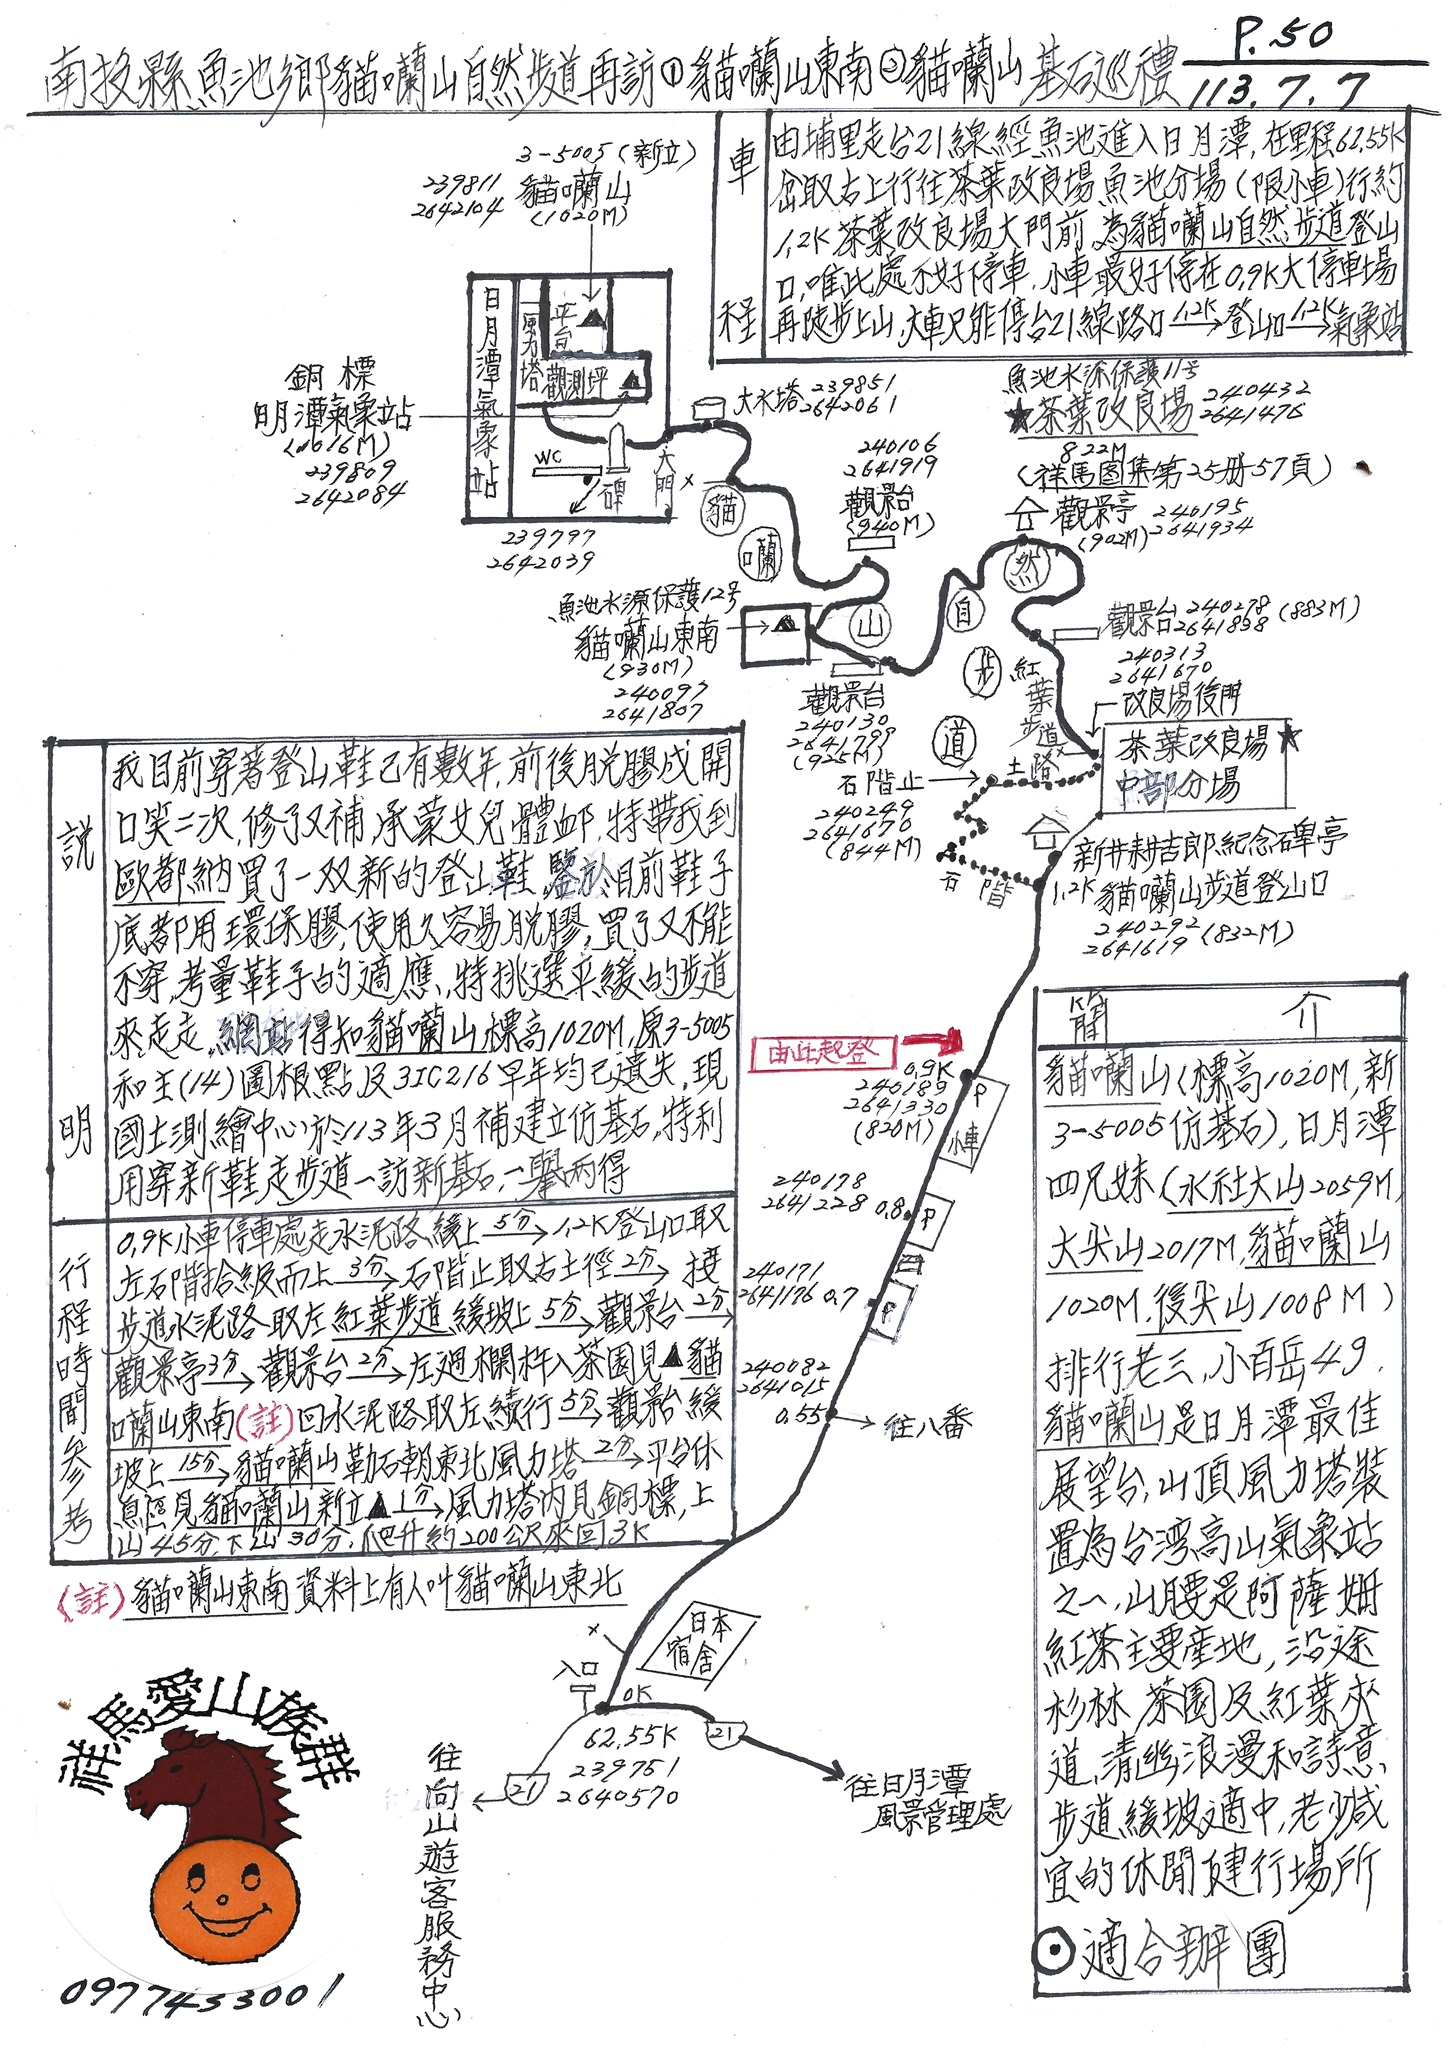 P.50
南投縣魚池鄉貓囒山自然步道再訪①貓囒山東南②貓囒山基石巡禮
113.7.7
車程
由埔里走台21線經魚池進入日月潭,在里程62.55K
岔取右上行往茶葉改良場魚池分場(限小車)行約
1.2K茶葉改良場大門前,為貓囒山自然步道登山
口,唯此處不好停車,小車最好停在0.9K大停車場
再陡步上山,大車只能停台21線路口 1.2K→登山口 1.2K→氣象站
3-5005(新立)
貓囒山
(1020M)
239811
2642104
日月潭氣象站
風力塔
平台
觀測坪
WC
碑
大門
銅標
日月潭氣象站
(1016M)
239809
2642084
239797
2642039
大水塔 239851
2642061
x
貓囒山自然步道
240106
2641919
觀景台
(940M)
魚池水源保護11号
★茶葉改良場
822M
240432
2641476
(祥馬图集第25册57頁)
觀景亭
(902M)
240195
2641934
魚池水源保護12号
貓囒山東南
(930M)
240097
2641807
觀景台
240130
2641799
(925M)
觀景台 240278
2641858 (883M)
240313
2641670
改良場後門
紅葉步道
土路
茶葉改良場★
中部分場
石階止
240249
2641670
(844M)
石階
新井耕吉郎紀念碑亭
1.2K 貓囒山步道登山口
240292
2641619 (832M)
說明
我目前穿著登山鞋己有數年,前後脱膠成開
口笑二次,修了又補,承蒙女兒體卹,特帶我到
歐都納買了一双新的登山鞋,鑒於目前鞋子
底都用環保膠,使用久容易脫膠,買了又不能
不穿,考量鞋子的適應,特挑選平緩的步道
來走走,網站得知貓囒山標高1020M,原3-5005
和主(14)圖根點及31C216早年均已遺失,現
國土測繪中心於113年3月補建立仿基石,特利
用穿新鞋走步道一訪新基石,一舉兩得
行程時間參考
0.9K小車停車處走水泥路緩上 5分→1.2K登山口取
左石階拾級而上 3分→石階止取右土徑 2分→接
步道水泥路取左紅葉步道緩坡上 5分→觀景台 2分→
觀景亭 3分→觀景台 2分→左迴欄杆入茶園見▲貓
囒山東南(註)回水泥路取左續行 5分→觀景台緩
坡上 15分→貓囒山勒石朝東北風力塔 2分→平台休
息區見貓囒山新立▲ 1分→風力塔內見銅標,上
山45分,下山30分,爬升約200公尺來回3K
(註)貓囒山東南資料上有人叫貓囒山東北
由此起登
0.9K
240189
2641330
(820M)
P
小車
240178
2641228 0.8
P
240171
2641176 0.7
P
240082
2641015
0.55
往八番
簡介
貓囒山(標高1020M,新
3-5005仿基石),日月潭
四兄妹(水社大山2059M,
大尖山2017M,貓囒山
1020M,後尖山1008M)
排行老三,小百岳49.
貓囒山是日月潭最佳
展望台,山頂風力塔裝
置為台湾高山氣象站
之一,山腰是阿薩姆
紅茶主要產地,沿途
杉林茶園及紅葉夾
道,清幽浪漫和詩意,
步道緩坡適中,老少咸
宜的休閒健行場所
⊙適合辦團
日本宿舍
x
入口
0K
62.55K
239751
2640570
21
21
往日月潭
風景管理處
往向山遊客服務中心
祥馬愛山族群
0977433001